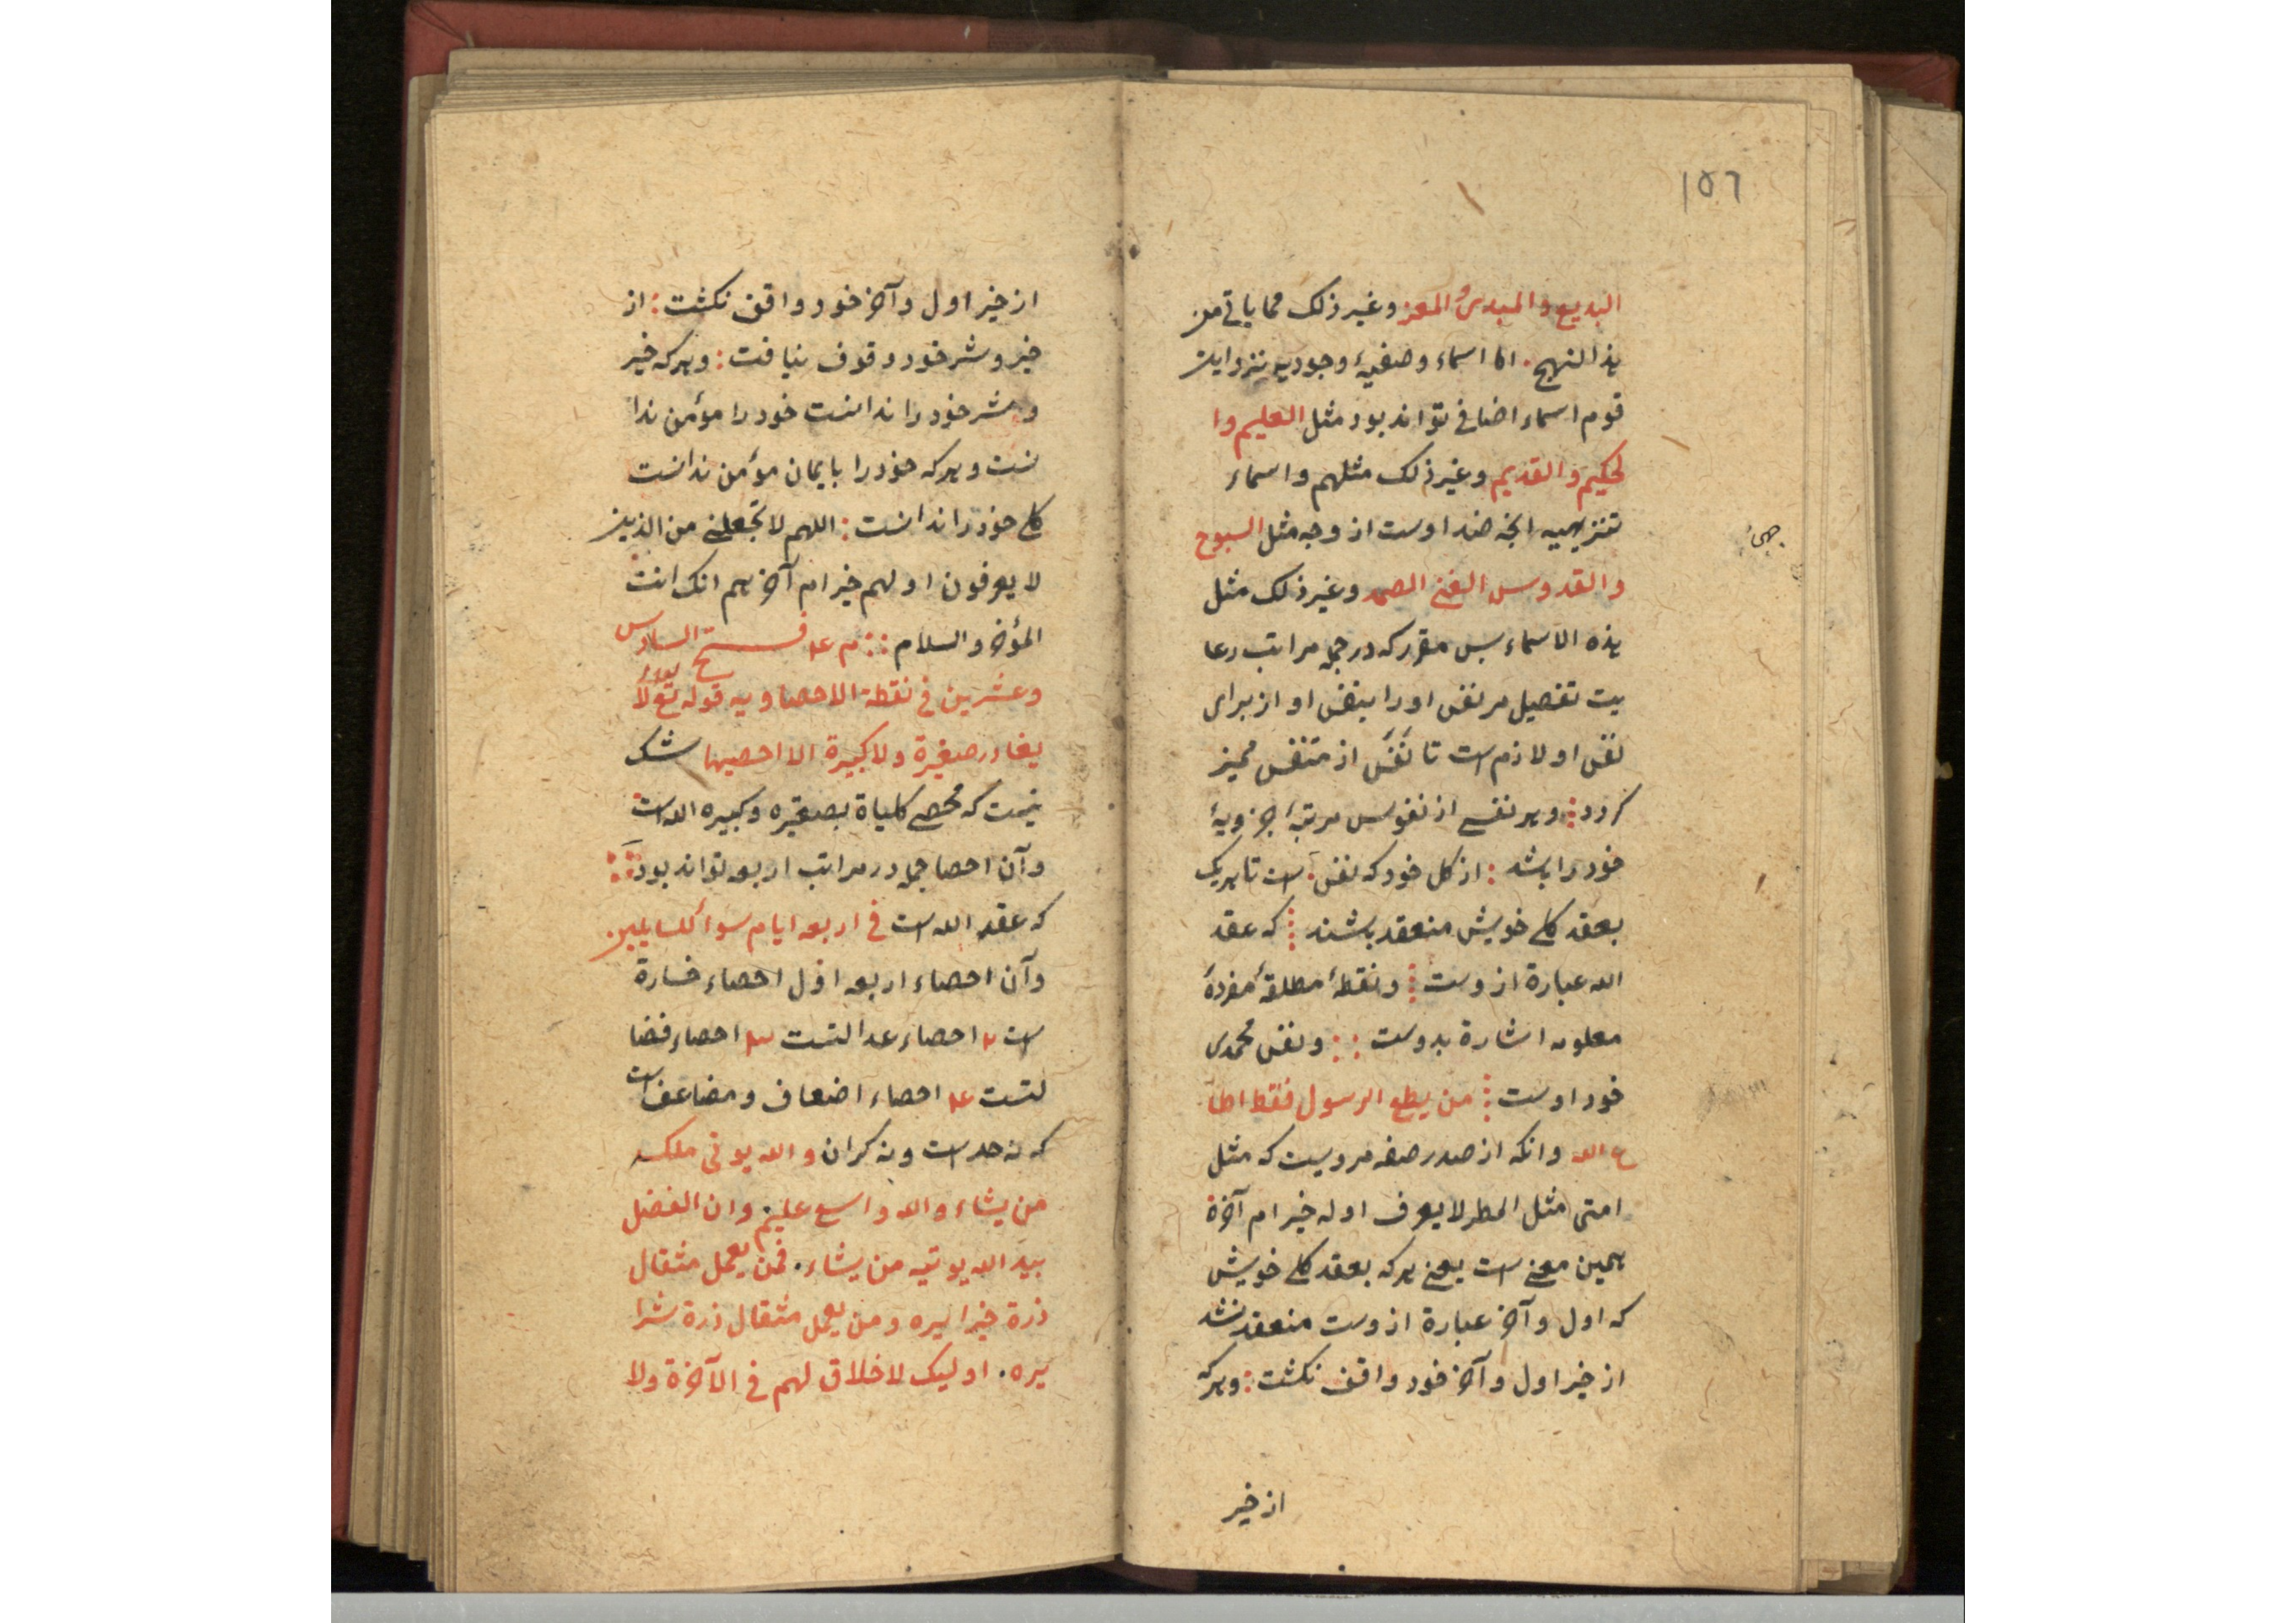 ١٥٦
البديع والمبدئ والمعز وغير ذلك مما ياتى من
هذا النهج . اما اسماء وصفيهٔ وجوديه نزد اين
قوم اسماء اضافى تواند بود مثل العليم وا
لحكيم والقديم وغير ذلك مثلهم واسماء
تنزيهيه انچه ضد اوست از وجه مثل السبوح
والقدوس الغنى الصمد وغير ذلك مثل
هذه الاسماء پس مقرر كه در جمله مراتب رعا
يت تفصيل مر نفس او را بنفس او از براى
نفس او لازم است تا نَفَس از متنفس مميز
كردد : وهر نفسى از نفوس مرتبهٔ جزويهٔ
خود را باشد : از كل خود كه نفس است تا هريك
بعقد كلى خويش منعقد باشند : كه عقد
الله عبارة ازوست : ونقطهٔ مطلقهٔ مفردهٔ
معلومه اشارة بدوست :: ونفس محمدى
خود اوست : من يطع الرسول فقط اطا
ع الله وانكه از صدر صفه مرويست كه مثل
امتى مثل المطر لا يعرف اوله خير ام آخرة
همين معنى است يعنى هركه بعقد كلى خويش
كه اول وآخر عبارة ازوست منعقد نشد
از خير اول وآخر خود واقف نكشت : وهركه
از خير
از خير اول وآخر خود واقف نكشت : از
خير وشر خود وقوف نيافت : وهركه خير
وشر خود را ندانست خود را مؤمن ندا
نست وهركه خود را بايمان مؤمن ندانست
كلى خود را ندانست : اللهم لا تجعلنى من الذين
لا يعرفون اولهم خير ام آخرهم انك انت
المؤخر والسلام :: م ع‍ فتح السادس
وعشرين فى نقطة الاحصاويه قوله تع لا
يغادر صغيرة ولا كبيرة الا احصيها شك
نيست كه محصى كلياة بصغيره وكبيره الله است
وآن احصا جمله در مراتب اربعه تواند بود ::
كه عقد الله است فى اربعه ايام سوأ للسايلين
وآن احصاء اربعه اول احصاء خسارة
است ٢ احصاء عدالتست ٣ احصاء فضا
لتست ٤ احصاء اضعاف ومضاعف است
كه نه حد است ونه كران والله يوتى ملكه
من يشاء والله واسع عليم وان الفضل
بيد الله يوتيه من يشاء . فمن يعمل مثقال
ذرة خيرا يره ومن يعمل مثقال ذرة شرا
يره . اوليك لا خلاق لهم فى الآخرة ولا